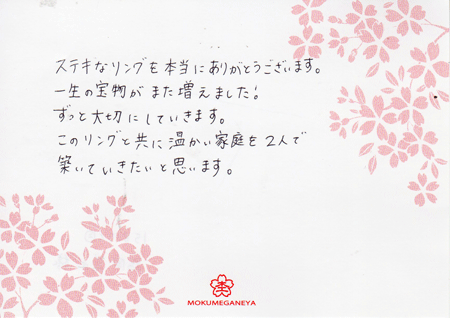 ステキなリングを本当にありがとうございます。
一生の宝物がまた増えました!
ずっと大切にしていきます。
このリングと共に温かい家庭を2人で
築いていきたいと思います。
MOKUMEGANEYA